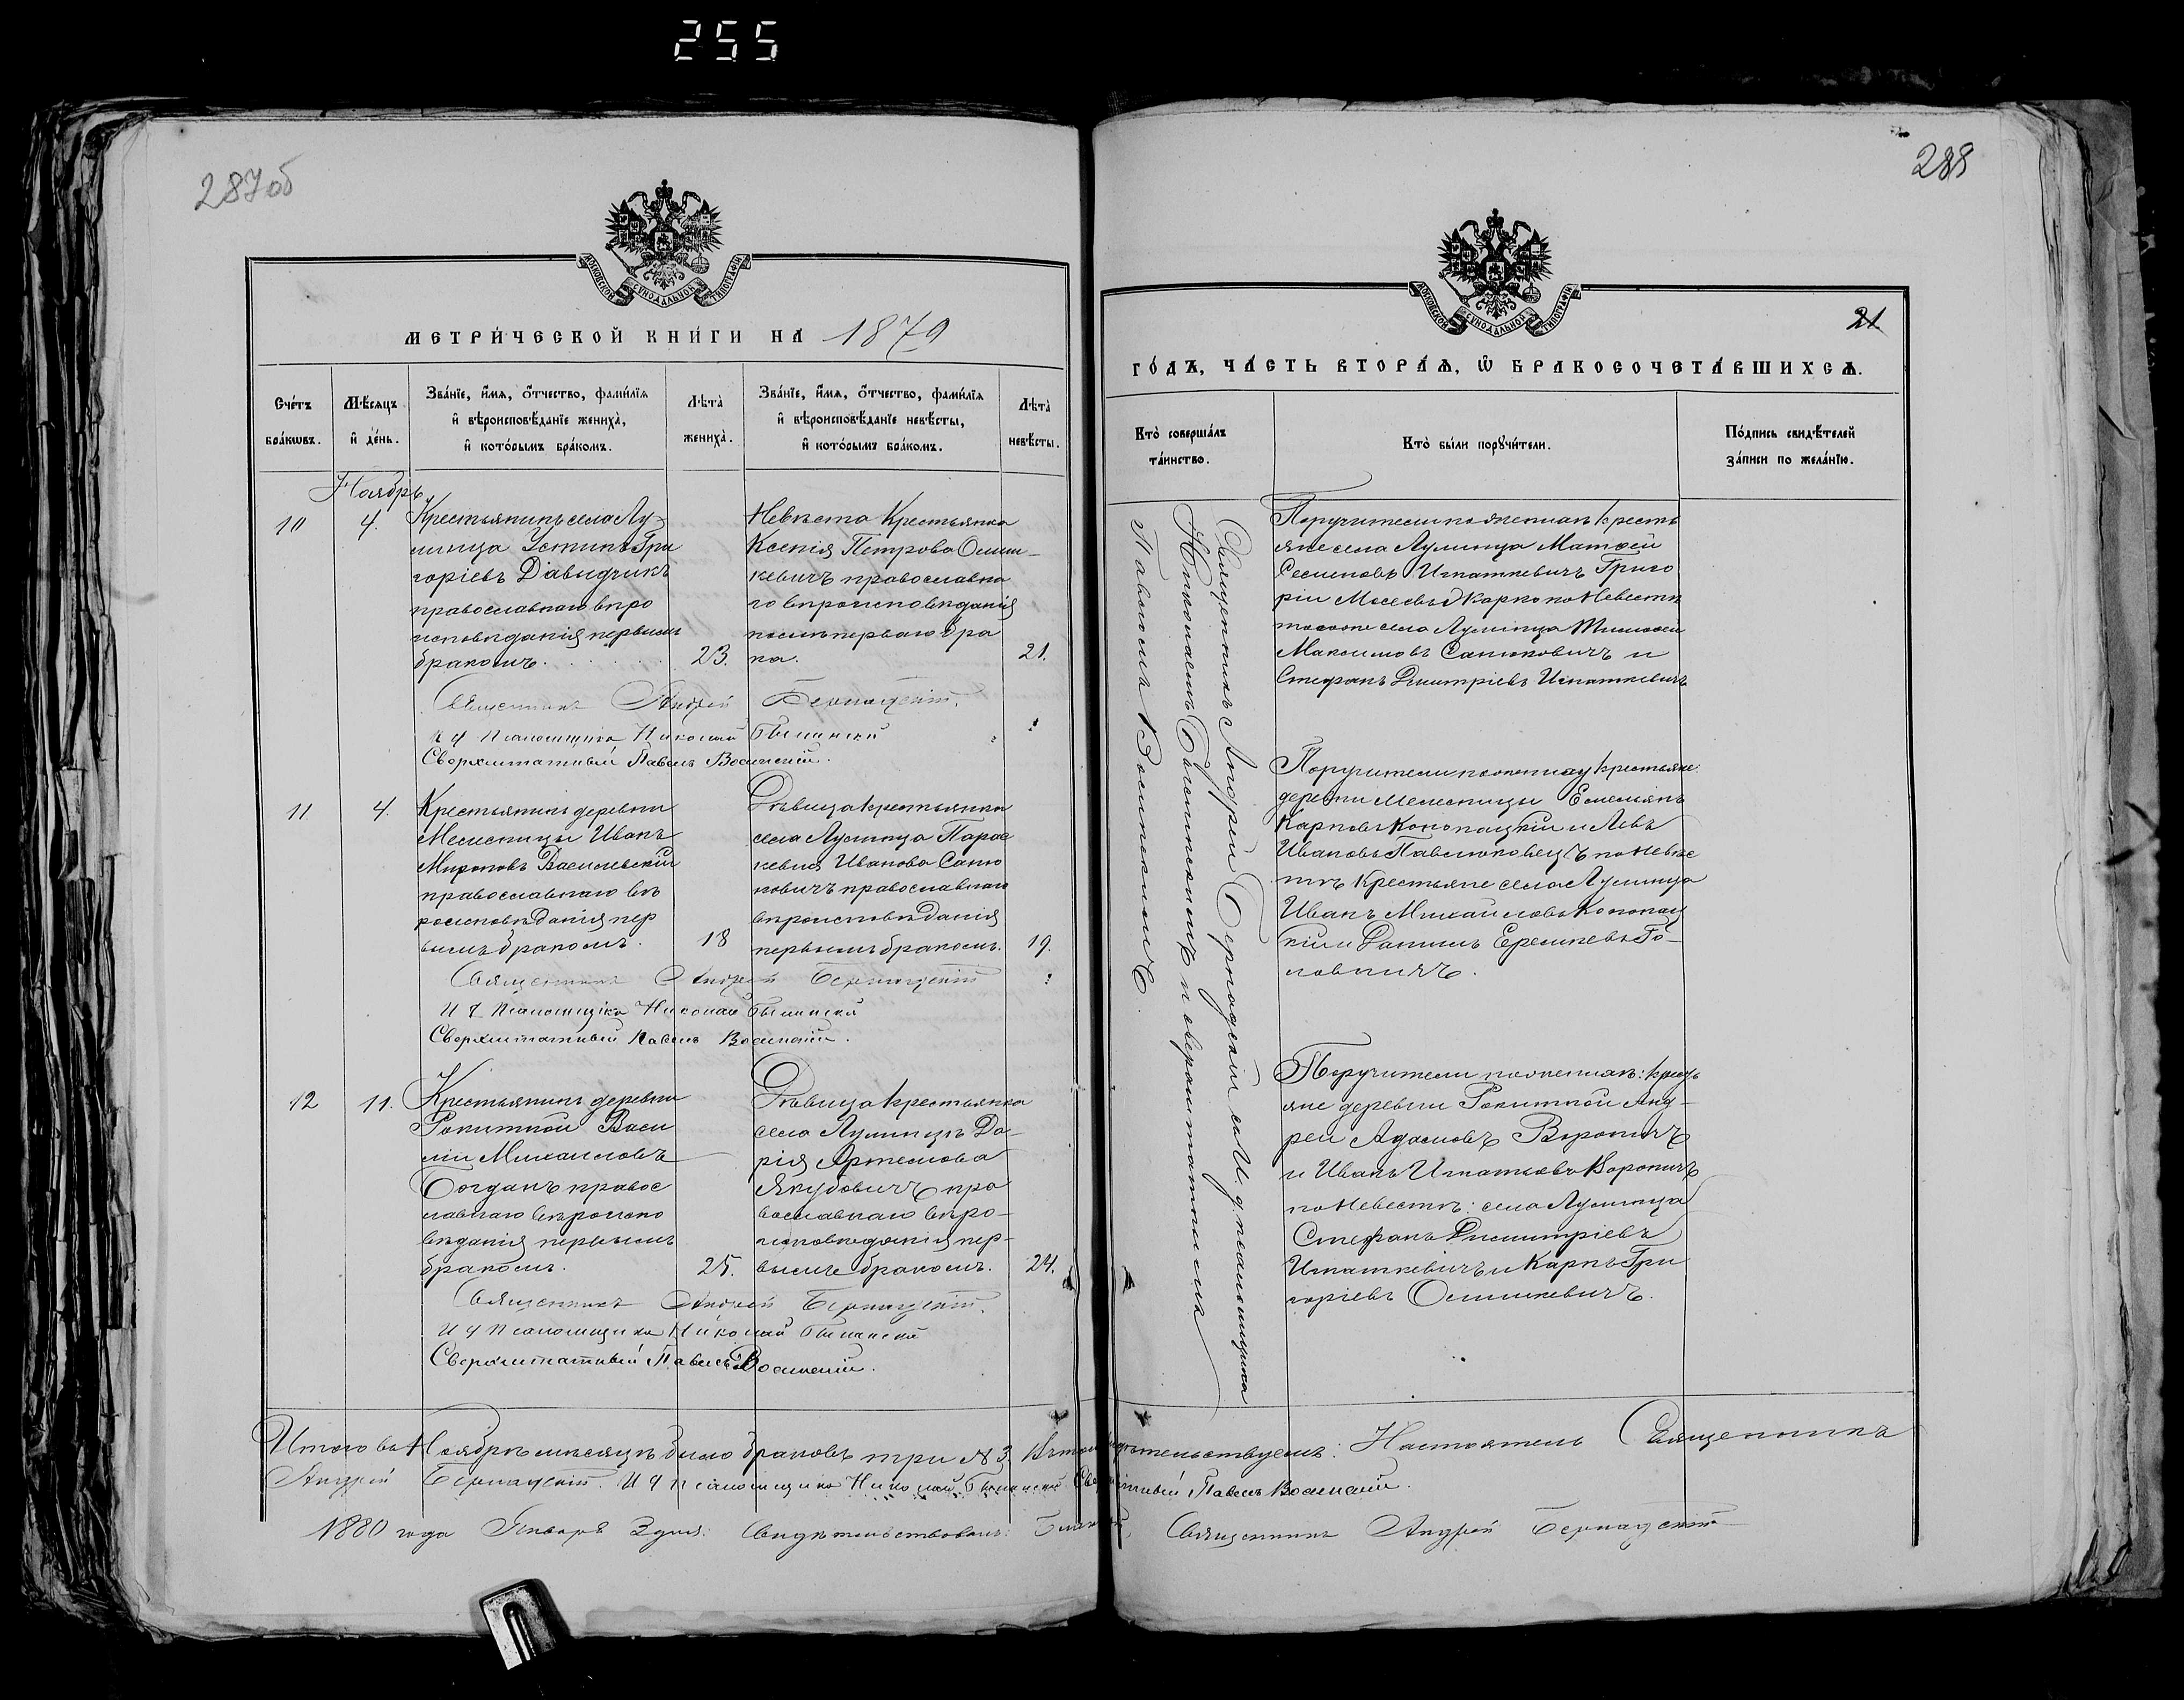 255
287об
МЕТРИ́ЧЕСКОЙ КНИ́ГИ НА 1879
Сче́тъ бра́кωвъ.
Мѣ́сяцъ и де́нь.
Зва́нїе, и́мя, о́тчество, фами́лїя и вѣроисповѣ́данїе жениха̀, и кото́рымъ бра́комъ.
Лѣта̀ жениха̀.
Зва́нїе, и́мя, о́тчество, фами́лїя и вѣроисповѣ́данїе невѣ́сты, и кото́рымъ бра́комъ.
Лѣта̀ невѣ́сты.
Ноябрь
10
4.
Крестьянинъ села Лу-
нинца Устинъ Гри
горіевъ Давидчикъ
православнаго вѣро
исповѣданія первымъ
бракомъ.
23.
Невѣста Крестьянка
Ксенія Петрова Осиш-
кевичъ православна
го вѣроисповѣданія
послѣ перваго бра
ка.
21.
Священникъ Андрей Бернадскій.
И д Псаломщика Николай
Сверхштатный Павелъ
11
4.
Крестьянинъ деревни
Мелесницы Иванъ
Мироновъ Василевскій
православнаго вѣ
роисповѣданія пер
вымъ бракомъ.
18
Дѣвица крестьянка
села Лунинца Парас
кевія Иванова Саню
ковичъ православнаго
вѣроисповѣданія
первымъ бракомъ.
19.
Священникъ Андрей Бернадскій
И д Псаломщика Николай
Сверхштатный Павелъ
12
11.
Крестьянинъ деревни
Ракитной Васи
лій Михаиловъ
Богданъ правос
лавнаго вѣроиспо
вѣданія первымъ
бракомъ.
25.
Дѣвица крестьянка
села Лунинцъ Да-
рія Артемова
Якубовичъ пра
вославнаго вѣро-
исповѣданія пер-
вымъ бракомъ.
24.
Священникъ Андрей Бернадскій.
И д Псаломщика Николай
Сверхштатный Павелъ
288
21
ГО́ДЪ, ЧА́СТЬ ВТОРА́Я, Ѿ БРАКОСОЧЕТА́ВШИХСЯ.
Кто̀ соверша́лъ та́инство.
Кто̀ бы́ли порꙋчи́тели.
По́дпись свидѣ́телей за́писи по жела́нїю.
Священникъ Андрей Бернадскій съ И. д. псаломщика
Николаемъ и сверхштатнымъ
Павломъ
Поручители по женихѣ кресть
яне села Лунинца Матѳей
Семеновъ Игнаткевичъ Григо
рій Карпо по Невестѣ
села Лунинца Тимоѳей
Максимовъ Санюковичъ и
Стефанъ Дмитріевъ Игнаткевичъ
Поручители по жениху крестьяне:
деревни Мелесницы Емеліянъ
Карповъ Конопацкій и Левъ
Ивановъ Павлюковецъ по невѣс
тѣ крестьяне села Лунинца
Иванъ Михаиловъ Конопац
кій и Данилъ Еремеевъ Го-
ловничъ.
Поручители по женихѣ: крест
яне деревни Ракитной Анд-
рей Адамовъ Вороничъ
и Иванъ Игнатьевъ Вороничъ
по Невестѣ: села Лунинца
Стефанъ Дмитріевъ
Игнаткевичъ и Карпъ Гри
горіевъ Осишкевичъ.
Итого въ Ноябрѣ мѣсяцѣ было браковъ три № 3. Настоятель Священникъ
Андрей Бернадскій. И д псаломщика Николай Павелъ
1880 года Января 3 дня: Свидѣтельствовалъ: Священникъ Андрей Бернадскій